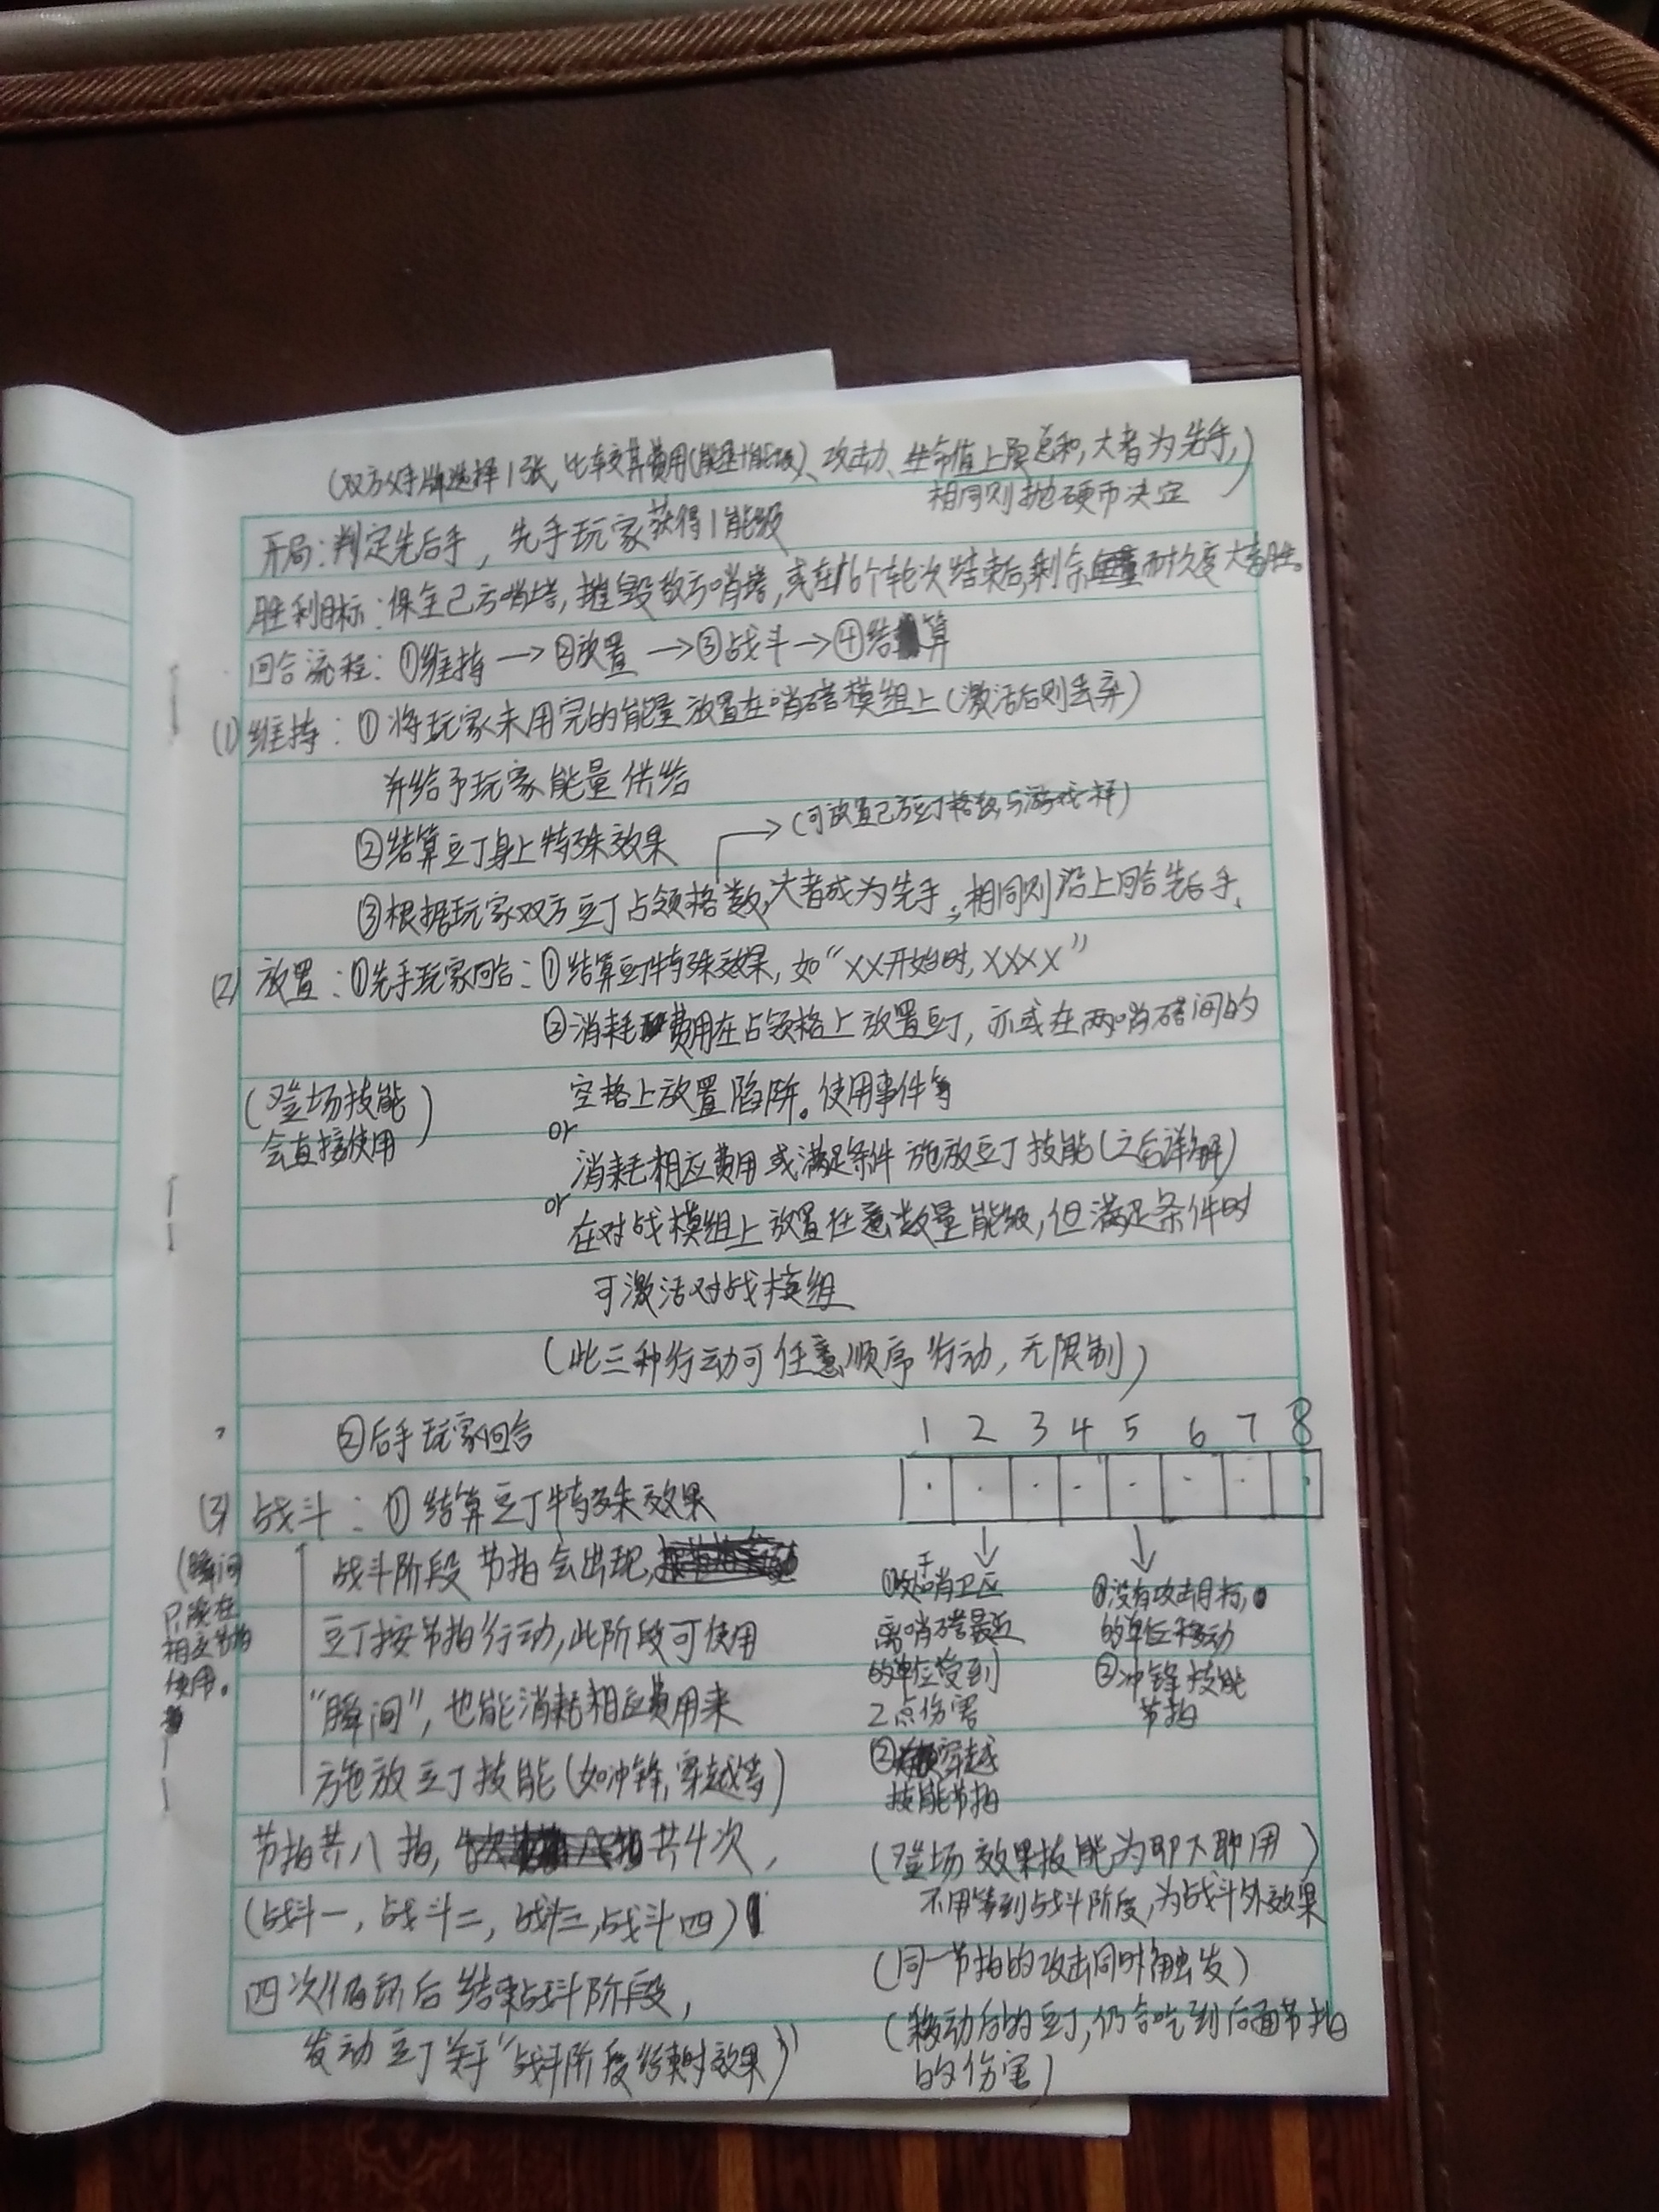 (双方从手牌选择1张,比较其费用(能量+能级)、攻击力、生命值上限总和,大者为先手,)
相同则抛硬币决定
开局:判定先后手,先手玩家获得1能级
胜利目标:保全己方哨塔,摧毁敌方哨塔,或在16个轮次结束后,剩余耐久度大者胜。
回合流程:①维持→②放置→③战斗→④结算
(1)维持:①将玩家未用完的能量放置在哨塔模组上(激活后则丢弃)
并给予玩家能量供给
→(可放置己方豆丁格数,与游戏一样)
②结算豆丁身上特殊效果
③根据玩家双方豆丁占领格数,大者成为先手,相同则沿上回合先后手、
(2)放置:①先手玩家回合:①结算豆丁特殊效果,如“XX开始时,XXXX”
②消耗费用在占领格上放置豆丁,亦或在两哨塔间的
空格上放置陷阱。使用事件等
(登场技能
会直接使用)
or
消耗相应费用或满足条件施放豆丁技能(之后详解)
or
在对战模组上放置任意数量能级,但满足条件时
可激活对战模组
(此三种行动可任意顺序行动,无限制)
②后手玩家回合
1 2 3 4 5 6 7 8
(3)战斗:①结算豆丁特殊效果
战斗阶段节拍会出现,
豆丁按节拍行动,此阶段可使用
“瞬间”,也能消耗相应费用来
施放豆丁技能(如冲锋,穿越等)
(瞬间
只能在
相应节拍
使用。
①处于哨卫区
离哨塔最近
的单位受到
2点伤害
②穿越
技能节拍
①没有攻击目标,
的单位移动
②冲锋技能
节拍
节拍共八拍,共4次,
(战斗一,战斗二,战斗三,战斗四)
四次循环后结束战斗阶段,
发动豆丁关于“战斗阶段结束时效果”)
(登场效果技能为即下即用)
不用等到战斗阶段,为战斗外效果
(同一节拍的攻击同时触发)
(移动后的豆丁,仍会吃到后面节拍
的伤害)